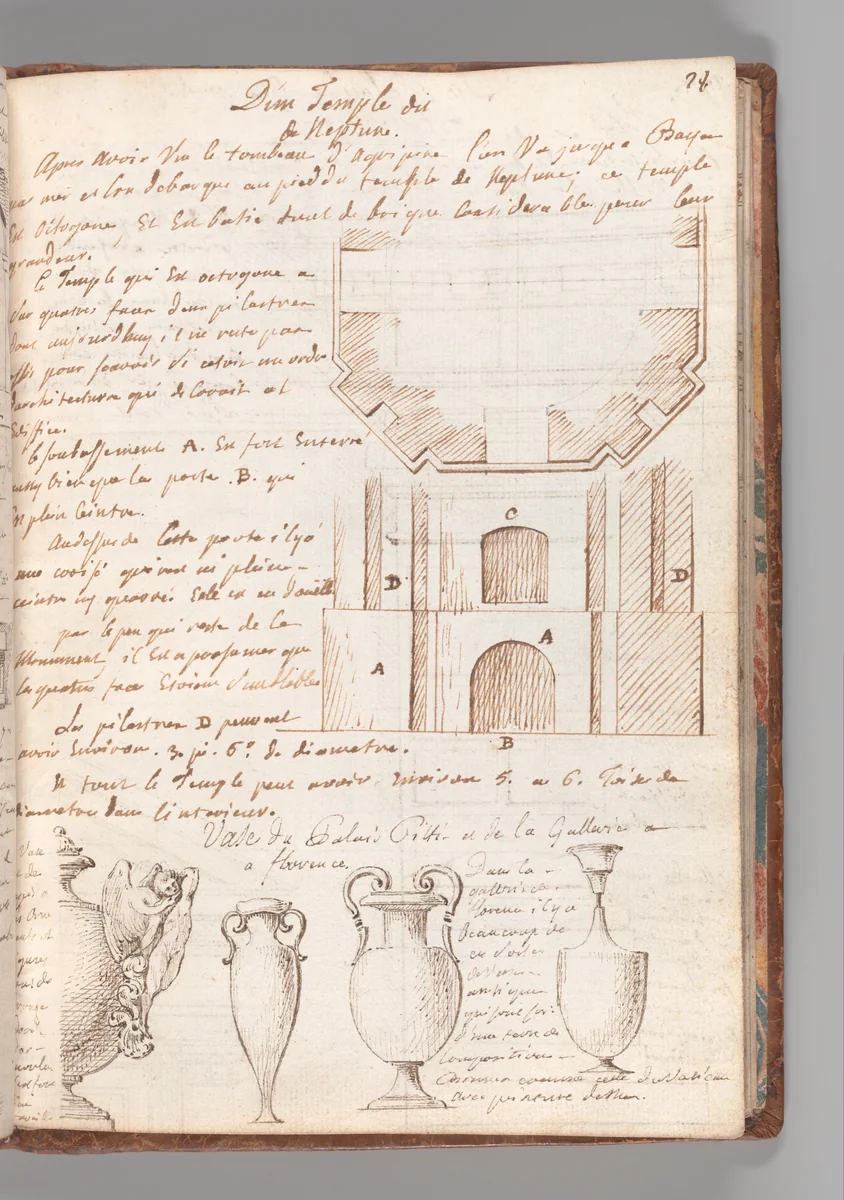 24
D'un Temple dit
de Neptune.
Apres avoir Vu le tombeau D'Agripine l'on Va jusqu'a Baya
par mer et l'on debarque au pied du temple de Neptune; ce temple
Est Octogone, Et Est batie tout de brique Considerable pour leur
grandeur.
le Temple qui Est octogone a
sur quatres faces deux pilastres
dont aujourdhuy il ne reste pas
assés pour scavoir si cetoit un ordre
d'architecture qui decoroit cet
Ediffice.
le soubassement A. Est fort Enterré
aussy bien que la porte .B. qui
Est plein Ceintre.
Audessus de Cette porte il y a
une croisé qui n'est ni plein
ceintre ny quarrés Elle est en
par le peu qui reste de Ce
Monument, il Est a presumer que
les quatres face Etoient semblables
Les pilastres D peuvent
avoir Environ . 3. pi. 6º. de diametre.
Et tout le Temple peut avoir Environ 5. a 6. Toises de
diametre dans l'interieur.
C
D
D
A
A
B
Vase du Palais Pitti et de la Gallerie a
a florence.
Vase
de
Dans la
gallerie de
florence il y a
beaucoup de
ces sortes
de Vases
antique
qui sont fai
d'une terre de
Composition
comme celle du Vatican
avec peinture dessus.